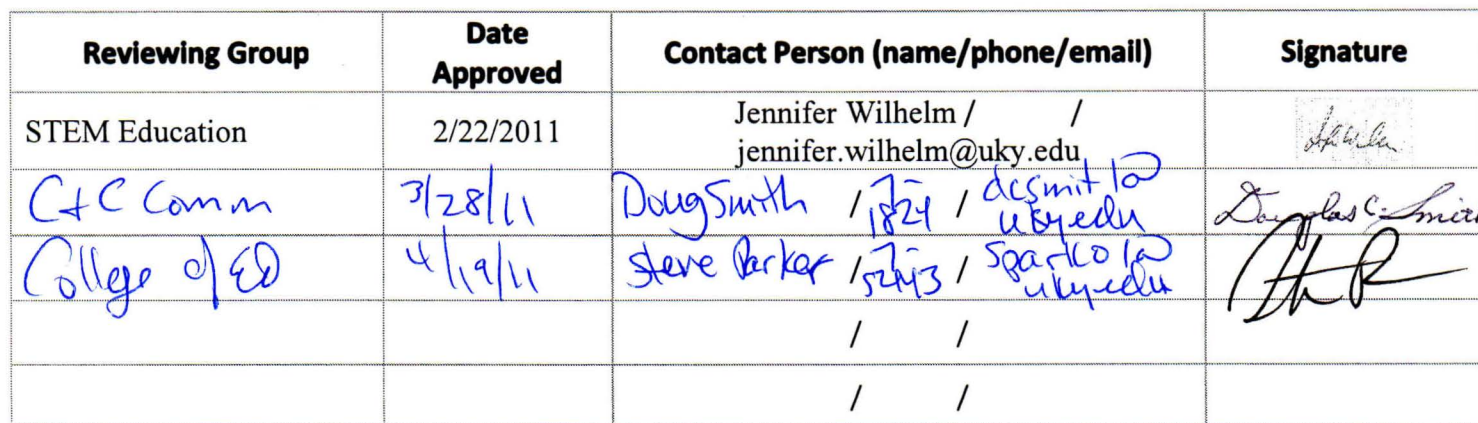 Reviewing Group Date Approved Contact Person (name/phone/email) Signature
STEM Education 2/22/2011 Jennifer Wilhelm / /
jennifer.wilhelm@uky.edu
C+C Comm 3/28/11 Doug Smith / 7-1824 / dcsmit1@uky.edu Douglas C. Smith
College of ED 4/19/11 Steve Parker / / uky.edu
/ /
/ /